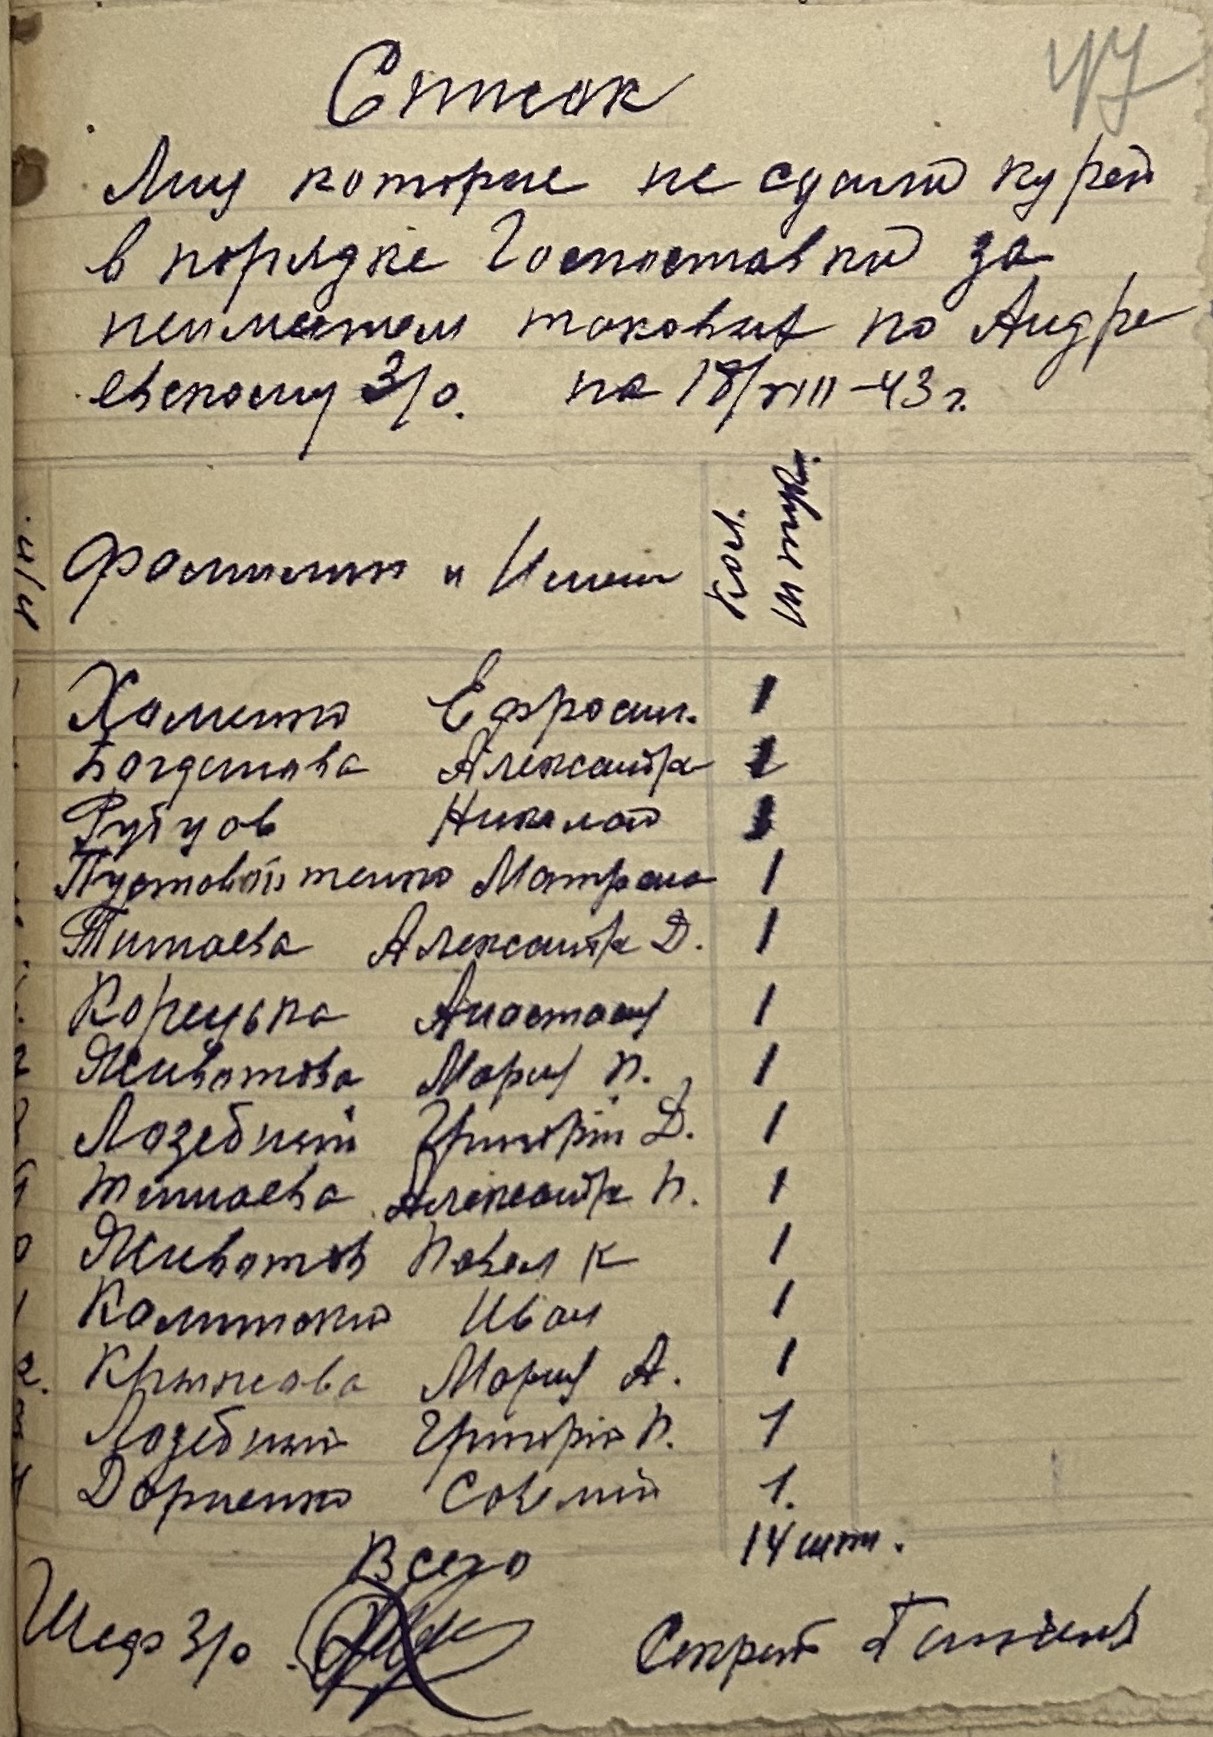 47
Список
Лиц которые не сдали курей
в порядке Госпоставки за
неимением таковых по Андре
евскому З/о. на 18/VIII-43 г.
Фамилии и Имени Кол. штук.
Хоменко Ефросин. 1
Богданова Александра 1
Рубцов Николай 1
Пустовойтенко Матрена 1
Титаева Александра Д. 1
Корецька Анастасия 1
Животова Мария П. 1
Лозебний Григорий Д. 1
Титаева Александра П. 1
Животов Павел К 1
Калитенко Иван 1
Крыжова Мария А. 1
Лозебний Григорий П. 1
Дорненко Савелий 1.
Всего 14 шт.
Шеф З/о Секрет